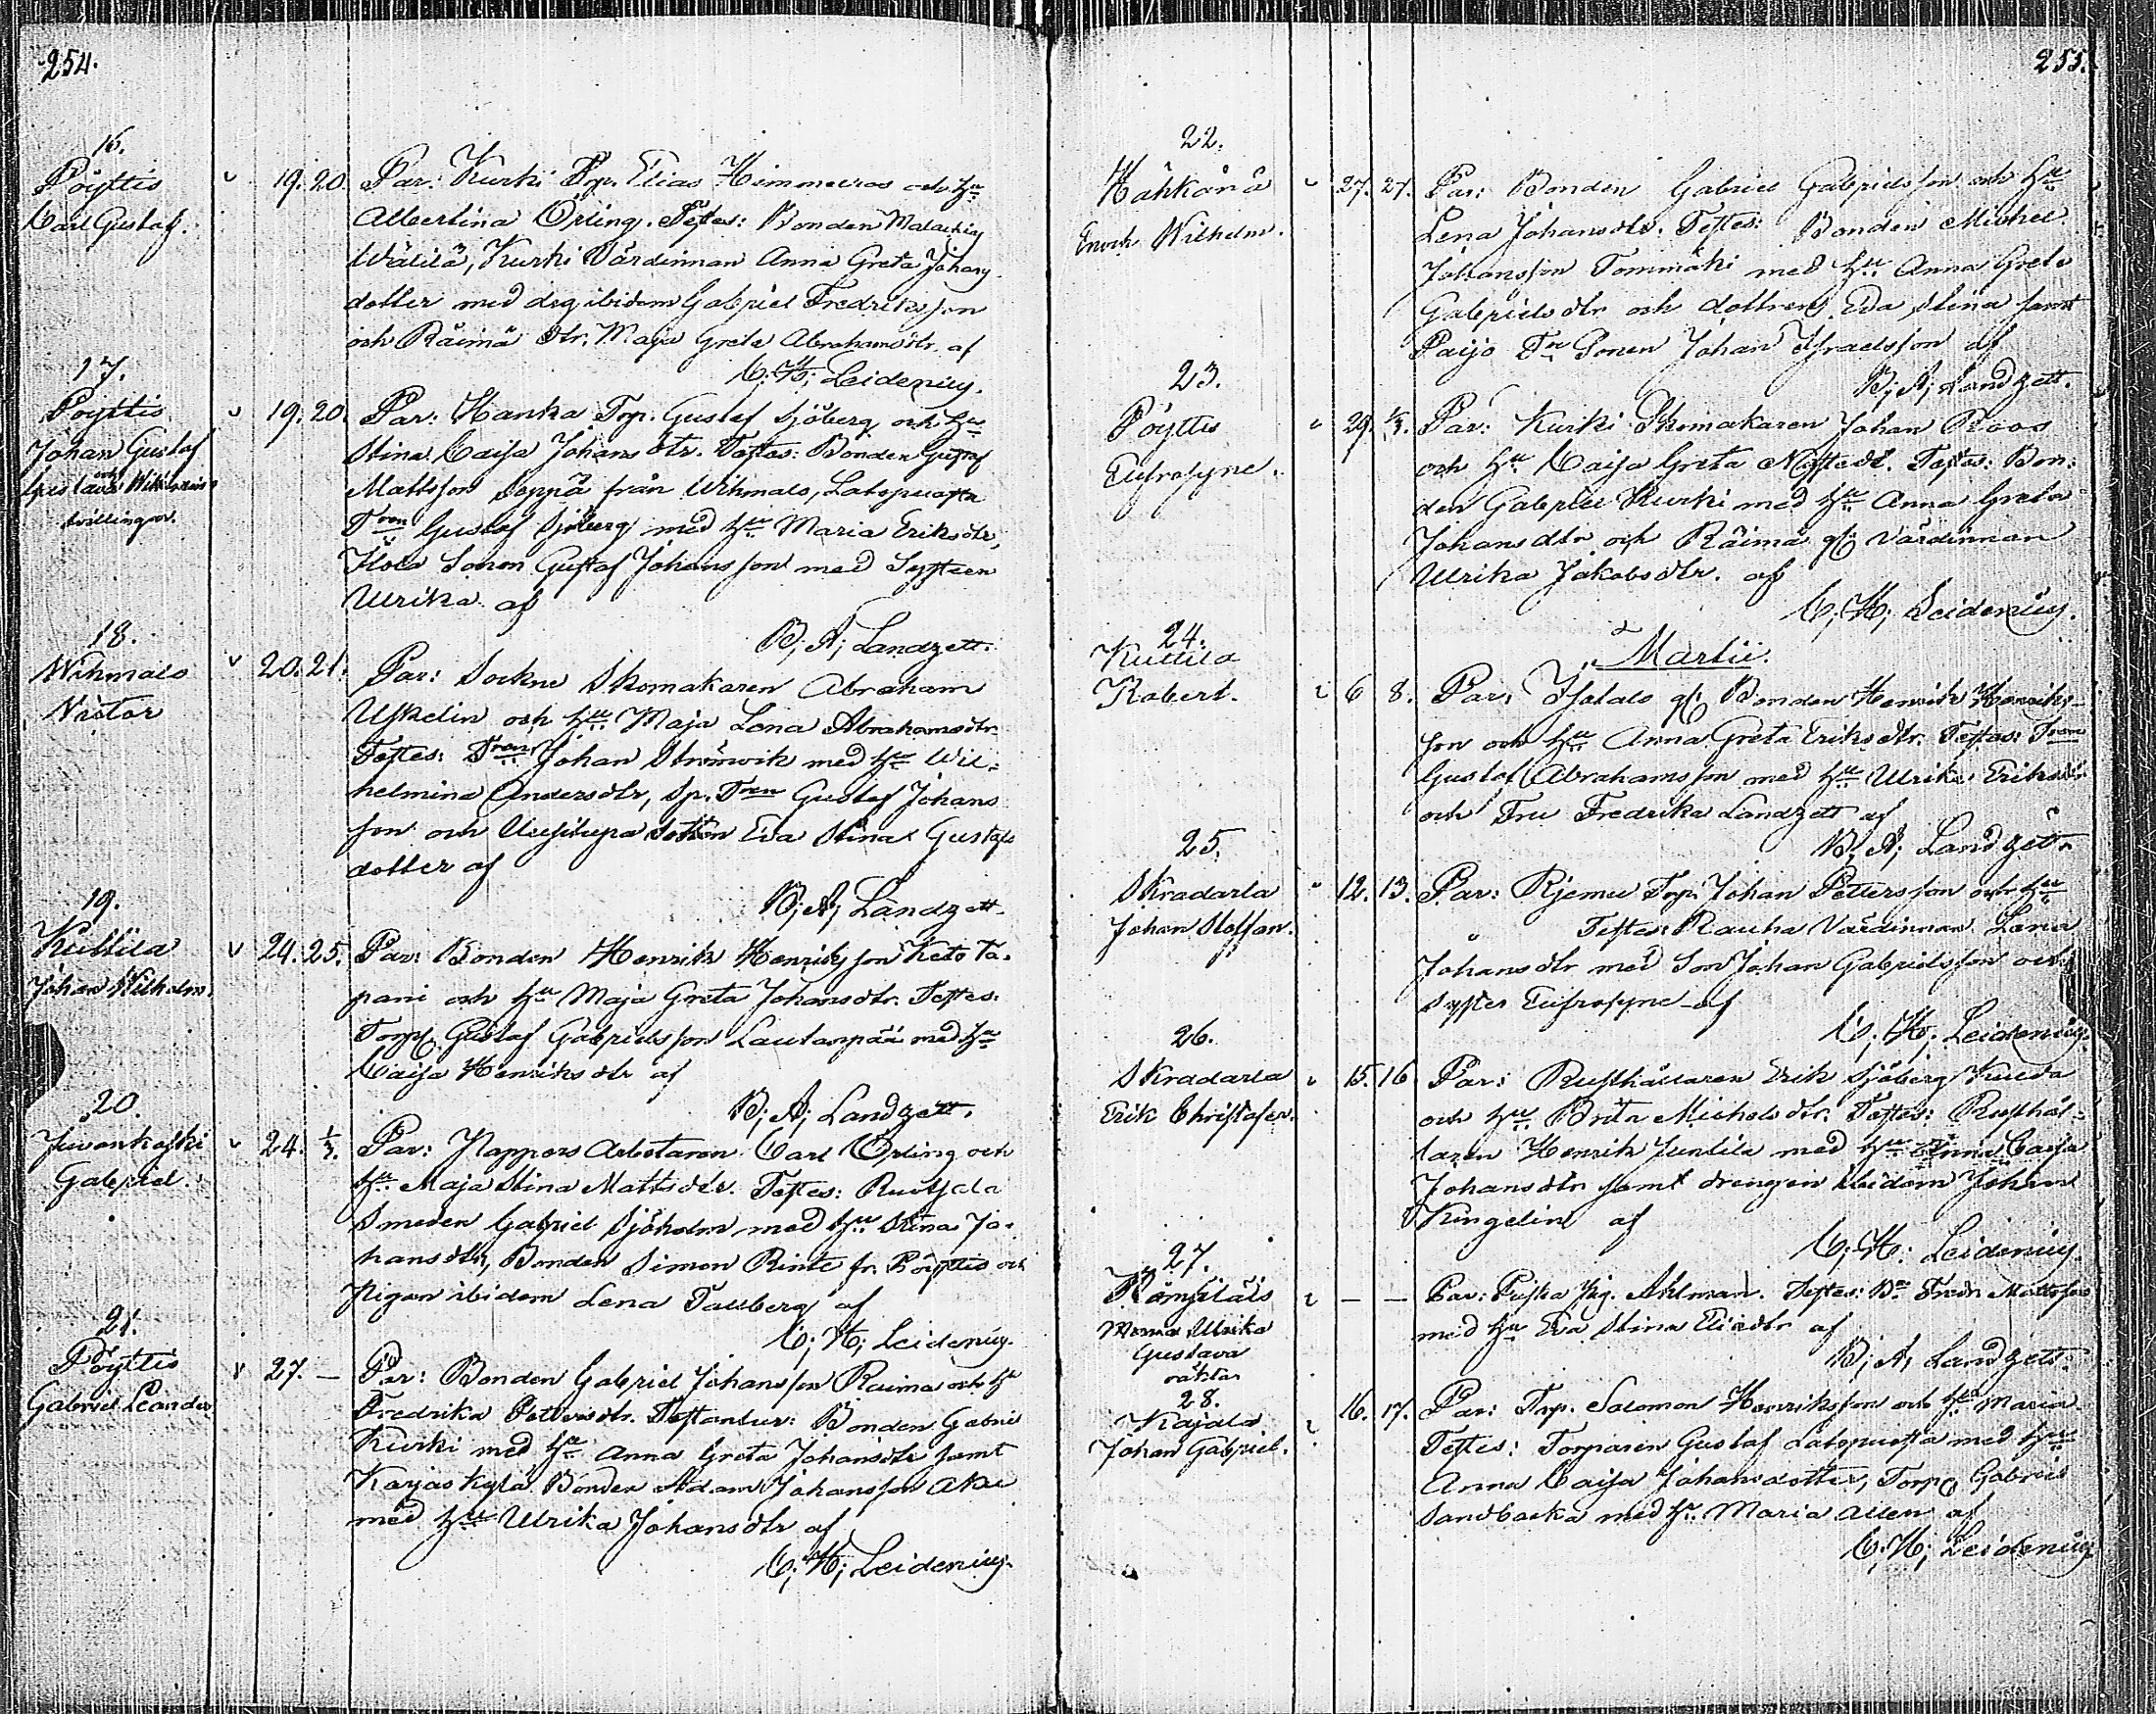 254.
16.
Pöyttis
Carl Gustaf.
19. 20.
Par: Kurki Trp. Elias Himmelroos och Hu
Albertina Örling. Testes: Bonden Malachias
Wälilä, Kurki Värdinnan Anna Greta Johans
dotter med drg ibidem Gabriel Fredriksson
och Räimä dtr. Maja Greta Abrahamsdtr. af
C; H; Leidenius.
17.
Pöyttis
Johan Gustaf
och
Gustava Wilhelmina
tvillingar.
19. 20.
Par: Hanka Trp. Gustaf Sjöberg och Hu
Stina Caisa Johansdtr. Testes: Bonden Gustaf
Mattsson Seppä från Wihmalo, Latopuosta
Tren Gustaf Sjöberg med Hu Maria Eriksdtr,
Ilola Sonen Gustaf Johansson med Systren
Ulrika af
B; A; Landzett.
18.
Wihmalo
Nistor
20. 21.
Par: Sockne Skomakaren Abraham
Uskelin och Hu Maja Lena Abrahamsdtr.
Testes: Tren Johan Strömvik med Hu Wil=
helmina Andersdtr, Sp. Tren Gustaf Johans
son och Eva Stina Gustafs
dotter af
B; A; Landzett.
19.
Kuttila
Johan Wilhelm.
24. 25.
Par: Bonden Henrik Henriksson Keto Ta=
pani och Hu Maja Greta Johansdtr. Testes:
Torp. Gustaf Gabrielsson Lautanpää med Hu
Caisa Henriksdtr af
B; A; Landzett.
20.
Juvankoski
Gabriel.
24. 1/3.
Par: Nappars Arbetaren Carl Örling och
Hu Maja Stina Mattsdtr. Testes: Ruotsala
Smeden Gabriel Sjöholm med Hu Stina Jo=
hansdtr, Bonden Simon Rinte fr. Pöyttis och
Pigan ibidem Lena Tallberg af
C; H; Leidenius.
21.
Pöyttis
Gabriel Leander
27. —
Par: Bonden Gabriel Johansson Raima och Hu
Fredrika Pettersdtr. Testantur: Bonden Gabriel
Kurki med Hu Anna Greta Johansdtr samt
Karjaskylä Bonden Adam Johansson Ake
med Hu Ulrika Johansdtr af
C; H; Leidenius.
255.
22.
Hähkänä
Enoch Wilhelm.
27. 27.
Par: Bonden Gabriel Gabrielsson och Hu
Lena Johansdtr. Testes: Bonden Michel
Johansson Tommaki med Hu Anna Greta
Gabrielsdtr och dottren Eva Stina samt
Paijo Tn Sonen Johan Israelsson af
B; A; Landzett.
23.
Pöyttis
Eufrosyne.
29. 1/3.
Par: Kurki Skomakaren Johan Roos
och Hu Caisa Greta Nystedt. Testes: Bon=
den Gabriel Kurki med Hu Anna Greta
Johansdtr och Räimä gl. Värdinnan
Ulrika Jakobsdtr. af
C; H; Leidenius.
Martii.
24.
Kuttila
Robert.
6 8.
Par: Isotalo gl. Bonden Henrik Henriks=
son och Hu Anna Greta Eriksdtr. Testes: Tren
Gustaf Abrahamsson med Hu Ulrika Eriksdtr
och Fru Fredrika Landzett af
B; A; Landzett.
25.
Skradarla
Johan Stoffan.
12. 13.
Par: Rjemu Trp. Johan Pettersson och Hu
Testes: Rauha Värdinnan Lena
Johansdtr med Son Johan Gabrielsson och
Syster Eufrosyne af
C; H; Leidenius.
26.
Skradarla
Erik Christofer.
15. 16
Par: Rusthållaren Erik Sjöberg Kulda
och Hu Brita Michelsdtr. Testes: Rusthål=
laren Henrik Juntila med Hu Anna Caisa
Johansdtr samt drengen ibidem Johan
Kingelin af
C; H; Leidenius.
27.
Römsiläis
Ulrika
Gustava
oäkta
— —
Par: Pig. Ahlman. Testes: Bn Fredr Mattsson
med Hu Eva Stina Eliædtr af
B; A; Landzett.
28.
Kajala
Johan Gabriel.
16. 17.
Par: Trp. Salomon Henriksson och Hu Maria
Testes: Torparen Gustaf Latopuosta med Hu
Anna Caisa Johansdotter, Torp Gabriel
Sandbacka med Hu Maria Allen af
C; H; Leidenius